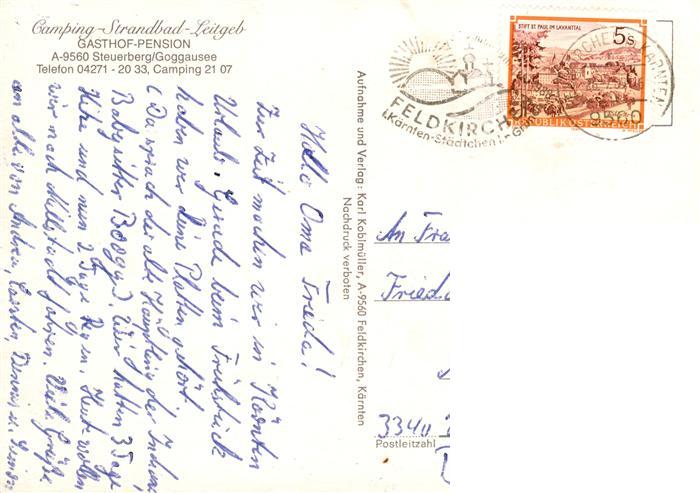 Camping-Strandbad-Leitgeb
GASTHOF-PENSION
A-9560 Steuerberg/Goggausee
Telefon 04271 - 20 33, Camping 21 07
Hallo Oma Frieda!
Zur Zeit machen wir in Kärnten
Urlaub. Gerade beim Frühstück
haben wir Deine Platten gehört.
(Da sprach der alte Häuptling der Indianer
Babysitter Boogy). Wir hatten 3 Tage
Hitze und nun 2 Tage Regen. Heut wollen
wir nach Millstadt fahren. Viele Grüße
an alle von Andrea, Carsten, Dennis u.
Aufnahme und Verlag: Karl Koblmüller, A-9560 Feldkirchen, Kärnten
Nachdruck verboten
FELDKIRCHEN
i.Kärnten-Städtchen i. Gr
STIFT ST. PAUL IM LAVANTTAL
5s
REPUBLIK ÖSTERREICH
KIRCHEN I. KÄRNTEN
9560
An Fra
Fried
3340
Postleitzahl